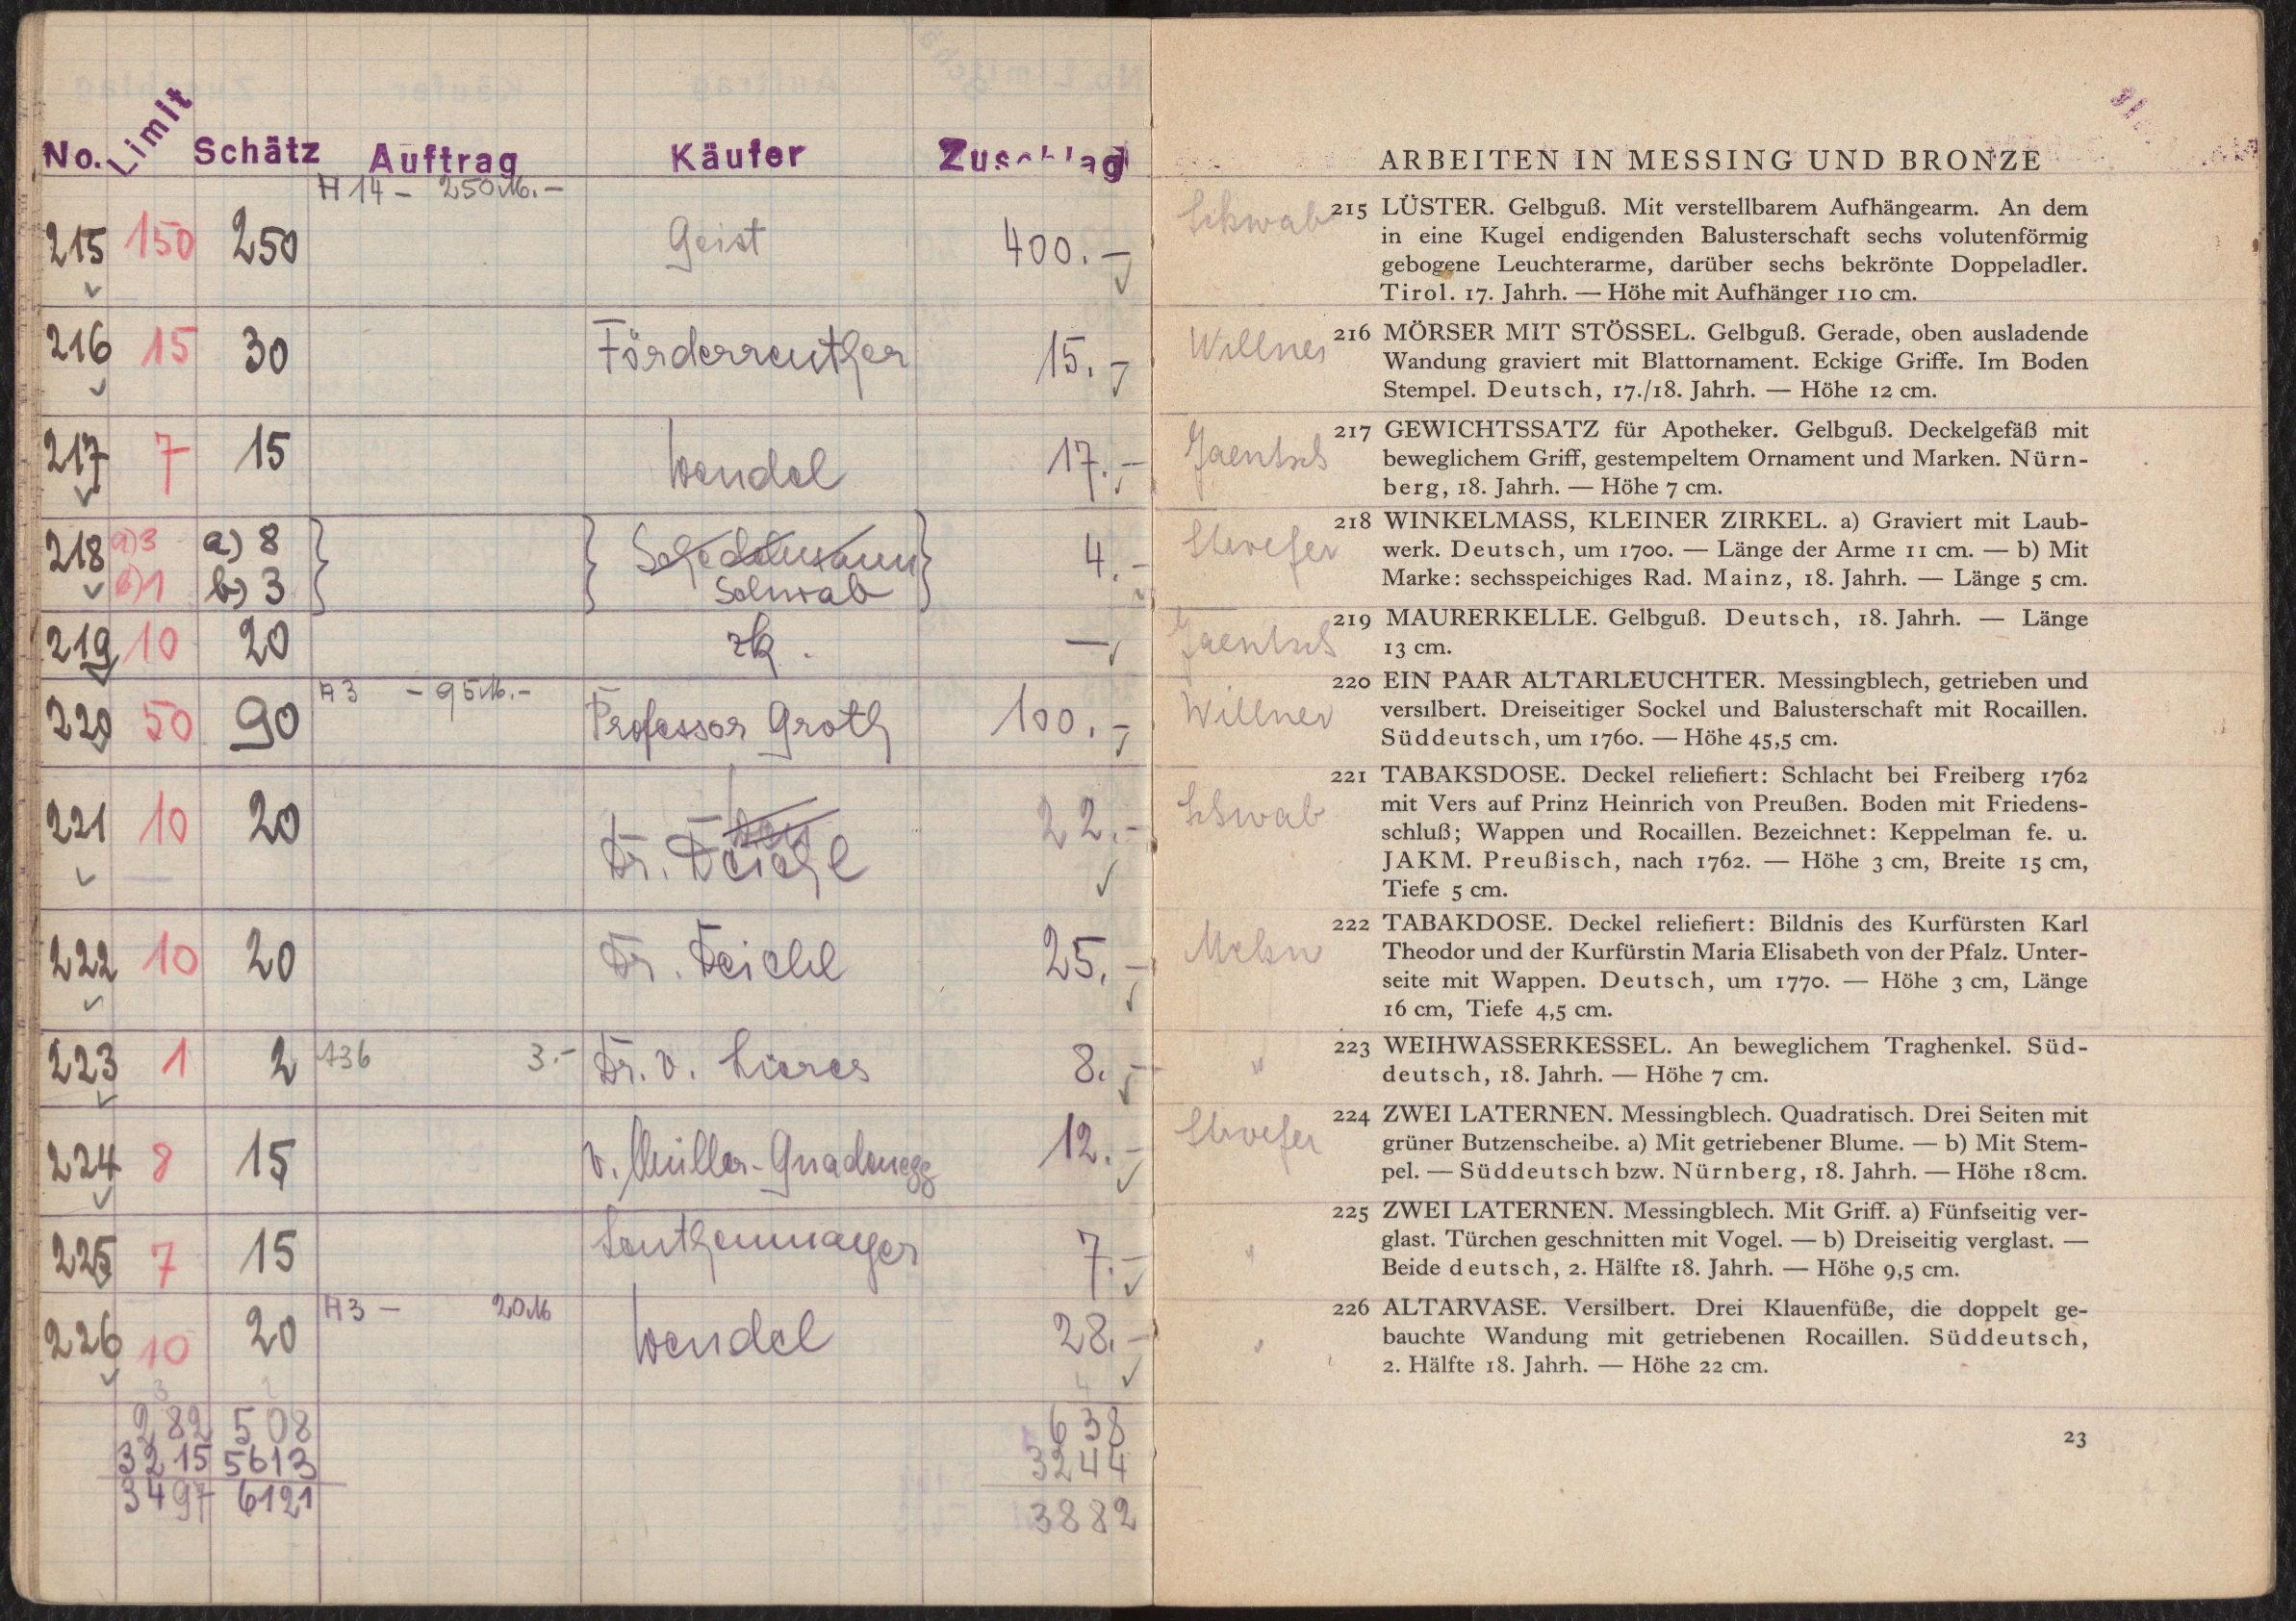 No. Limit Schätz Auftrag Käufer Zuschlag
H 14 - 250 M.-
215 150 250 Geist 400.-
216 15 30 Förderreuther 15.-
217 7 15 Wendel 17.-
218 a) 3 a) 8 4.-
b) 1 b) 3 Schwab
219 10 20 zk. —
H 3 - 95 M.-
220 50 90 Professor Groth 100.-
221 10 20 Dr. Deichl 22.-
222 10 20 Dr. Deichl 25.-
223 1 2 3.- Dr. v. Lieres 8.-
224 8 15 v. Müller-Gnadenegg 12.-
225 7 15 7.-
H 3 - 20 M
226 10 20 Wendel 28.-
282 508 638
3215 5613 3244
3497 6121 3882
ARBEITEN IN MESSING UND BRONZE
Schwab 215 LÜSTER. Gelbguß. Mit verstellbarem Aufhängearm. An dem
in eine Kugel endigenden Balusterschaft sechs volutenförmig
gebogene Leuchterarme, darüber sechs bekrönte Doppeladler.
Tirol. 17. Jahrh. — Höhe mit Aufhänger 110 cm.
Willner 216 MÖRSER MIT STÖSSEL. Gelbguß. Gerade, oben ausladende
Wandung graviert mit Blattornament. Eckige Griffe. Im Boden
Stempel. Deutsch, 17./18. Jahrh. — Höhe 12 cm.
Jaentsch 217 GEWICHTSSATZ für Apotheker. Gelbguß. Deckelgefäß mit
beweglichem Griff, gestempeltem Ornament und Marken. Nürn-
berg, 18. Jahrh. — Höhe 7 cm.
218 WINKELMASS, KLEINER ZIRKEL. a) Graviert mit Laub-
werk. Deutsch, um 1700. — Länge der Arme 11 cm. — b) Mit
Marke: sechsspeichiges Rad. Mainz, 18. Jahrh. — Länge 5 cm.
Jaentsch 219 MAURERKELLE. Gelbguß. Deutsch, 18. Jahrh. — Länge
13 cm.
Willner 220 EIN PAAR ALTARLEUCHTER. Messingblech, getrieben und
versilbert. Dreiseitiger Sockel und Balusterschaft mit Rocaillen.
Süddeutsch, um 1760. — Höhe 45,5 cm.
Schwab 221 TABAKSDOSE. Deckel reliefiert: Schlacht bei Freiberg 1762
mit Vers auf Prinz Heinrich von Preußen. Boden mit Friedens-
schluß; Wappen und Rocaillen. Bezeichnet: Keppelman fe. u.
JAKM. Preußisch, nach 1762. — Höhe 3 cm, Breite 15 cm,
Tiefe 5 cm.
222 TABAKDOSE. Deckel reliefiert: Bildnis des Kurfürsten Karl
Theodor und der Kurfürstin Maria Elisabeth von der Pfalz. Unter-
seite mit Wappen. Deutsch, um 1770. — Höhe 3 cm, Länge
16 cm, Tiefe 4,5 cm.
" 223 WEIHWASSERKESSEL. An beweglichem Traghenkel. Süd-
deutsch, 18. Jahrh. — Höhe 7 cm.
224 ZWEI LATERNEN. Messingblech. Quadratisch. Drei Seiten mit
grüner Butzenscheibe. a) Mit getriebener Blume. — b) Mit Stem-
pel. — Süddeutsch bzw. Nürnberg, 18. Jahrh. — Höhe 18 cm.
" 225 ZWEI LATERNEN. Messingblech. Mit Griff. a) Fünfseitig ver-
glast. Türchen geschnitten mit Vogel. — b) Dreiseitig verglast. —
Beide deutsch, 2. Hälfte 18. Jahrh. — Höhe 9,5 cm.
" 226 ALTARVASE. Versilbert. Drei Klauenfüße, die doppelt ge-
bauchte Wandung mit getriebenen Rocaillen. Süddeutsch,
2. Hälfte 18. Jahrh. — Höhe 22 cm.
23